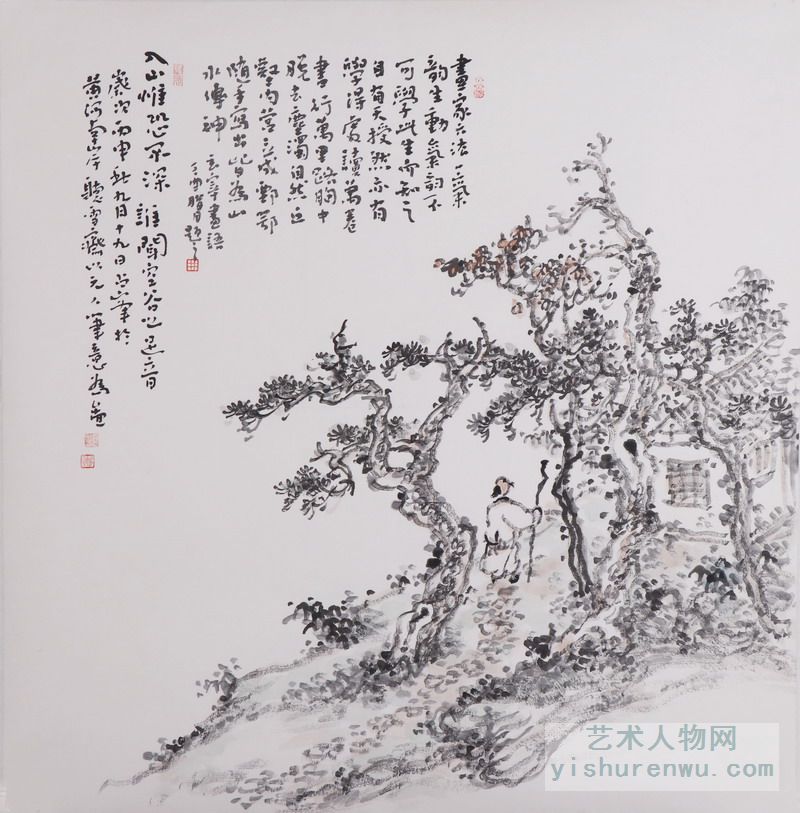 畫家六法一氣
韵生動氣韵不
可學此生而知之
自有天授然亦有
學得處讀萬卷
書行萬里路胸中
脫去塵濁自然丘
壑內營立成鄞鄂
隨手寫出皆為山
水傳神 玄宰畫語
丁酉腊月題
入山惟恐不深 誰聞空谷音
歲次丙申秋九月十九日 筆於
黃河南岸聽雪齋以元人筆意為
艺术人物网
yishurenwu.com